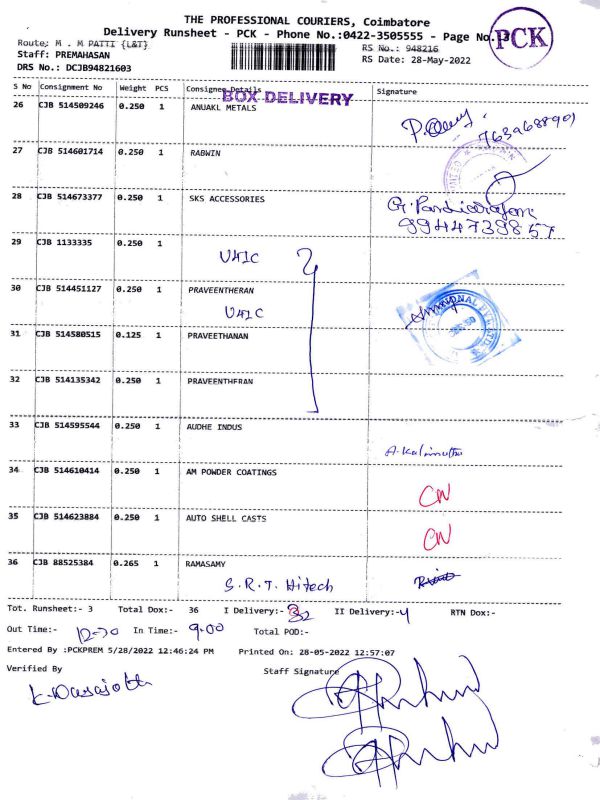 THE PROFESSIONAL COURIERS, Coimbatore
Delivery Runsheet - PCK - Phone No.:0422-3505555 - Page No. 3
PCK
Route: M . M PATTI {L&T}
Staff: PREMAHASAN
DRS No.: DCJB94821603
RS No.: 948216
RS Date: 28-May-2022
S No Consignment No Weight PCS Consignee Details Signature
BOX DELIVERY
26 CJB 514509246 0.250 1 ANUAKL METALS
7639688901
27 CJB 514601714 0.250 1 RABWIN
28 CJB 514673377 0.250 1 SKS ACCESSORIES
9944739857
29 CJB 1133335 0.250 1
30 CJB 514451127 0.250 1 PRAVEENTHERAN
31 CJB 514580515 0.125 1 PRAVEETHANAN
32 CJB 514135342 0.250 1 PRAVEENTHERAN
33 CJB 514595544 0.250 1 AUDHE INDUS
34 CJB 514610414 0.250 1 AM POWDER COATINGS
CN
35 CJB 514623884 0.250 1 AUTO SHELL CASTS
CN
36 CJB 88525384 0.265 1 RAMASAMY
S.R.T. Hitech
Tot. Runsheet:- 3 Total Dox:- 36 I Delivery:- 32 II Delivery:- 4 RTN Dox:-
Out Time:- In Time:- 9.00 Total POD:-
Entered By :PCKPREM 5/28/2022 12:46:24 PM Printed On: 28-05-2022 12:57:07
Verified By Staff Signature